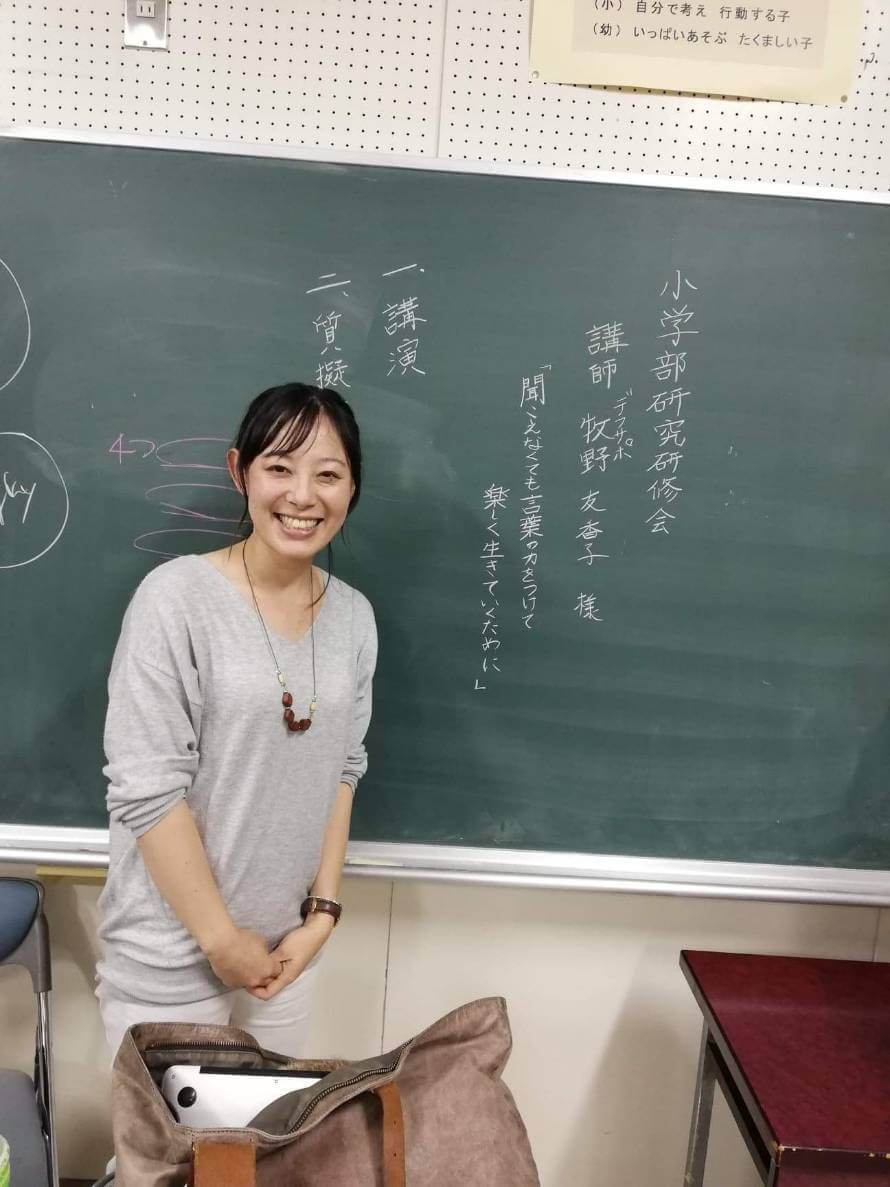 （小） 自分で考え 行動する子
（幼） いっぱいあそぶ たくましい子
小学部研究研修会
講師 牧野 友香子 様
デフサポ
「聞こえなくても言葉の力をつけて
楽しく生きていくために」
一、講演
二、質擬
4つ